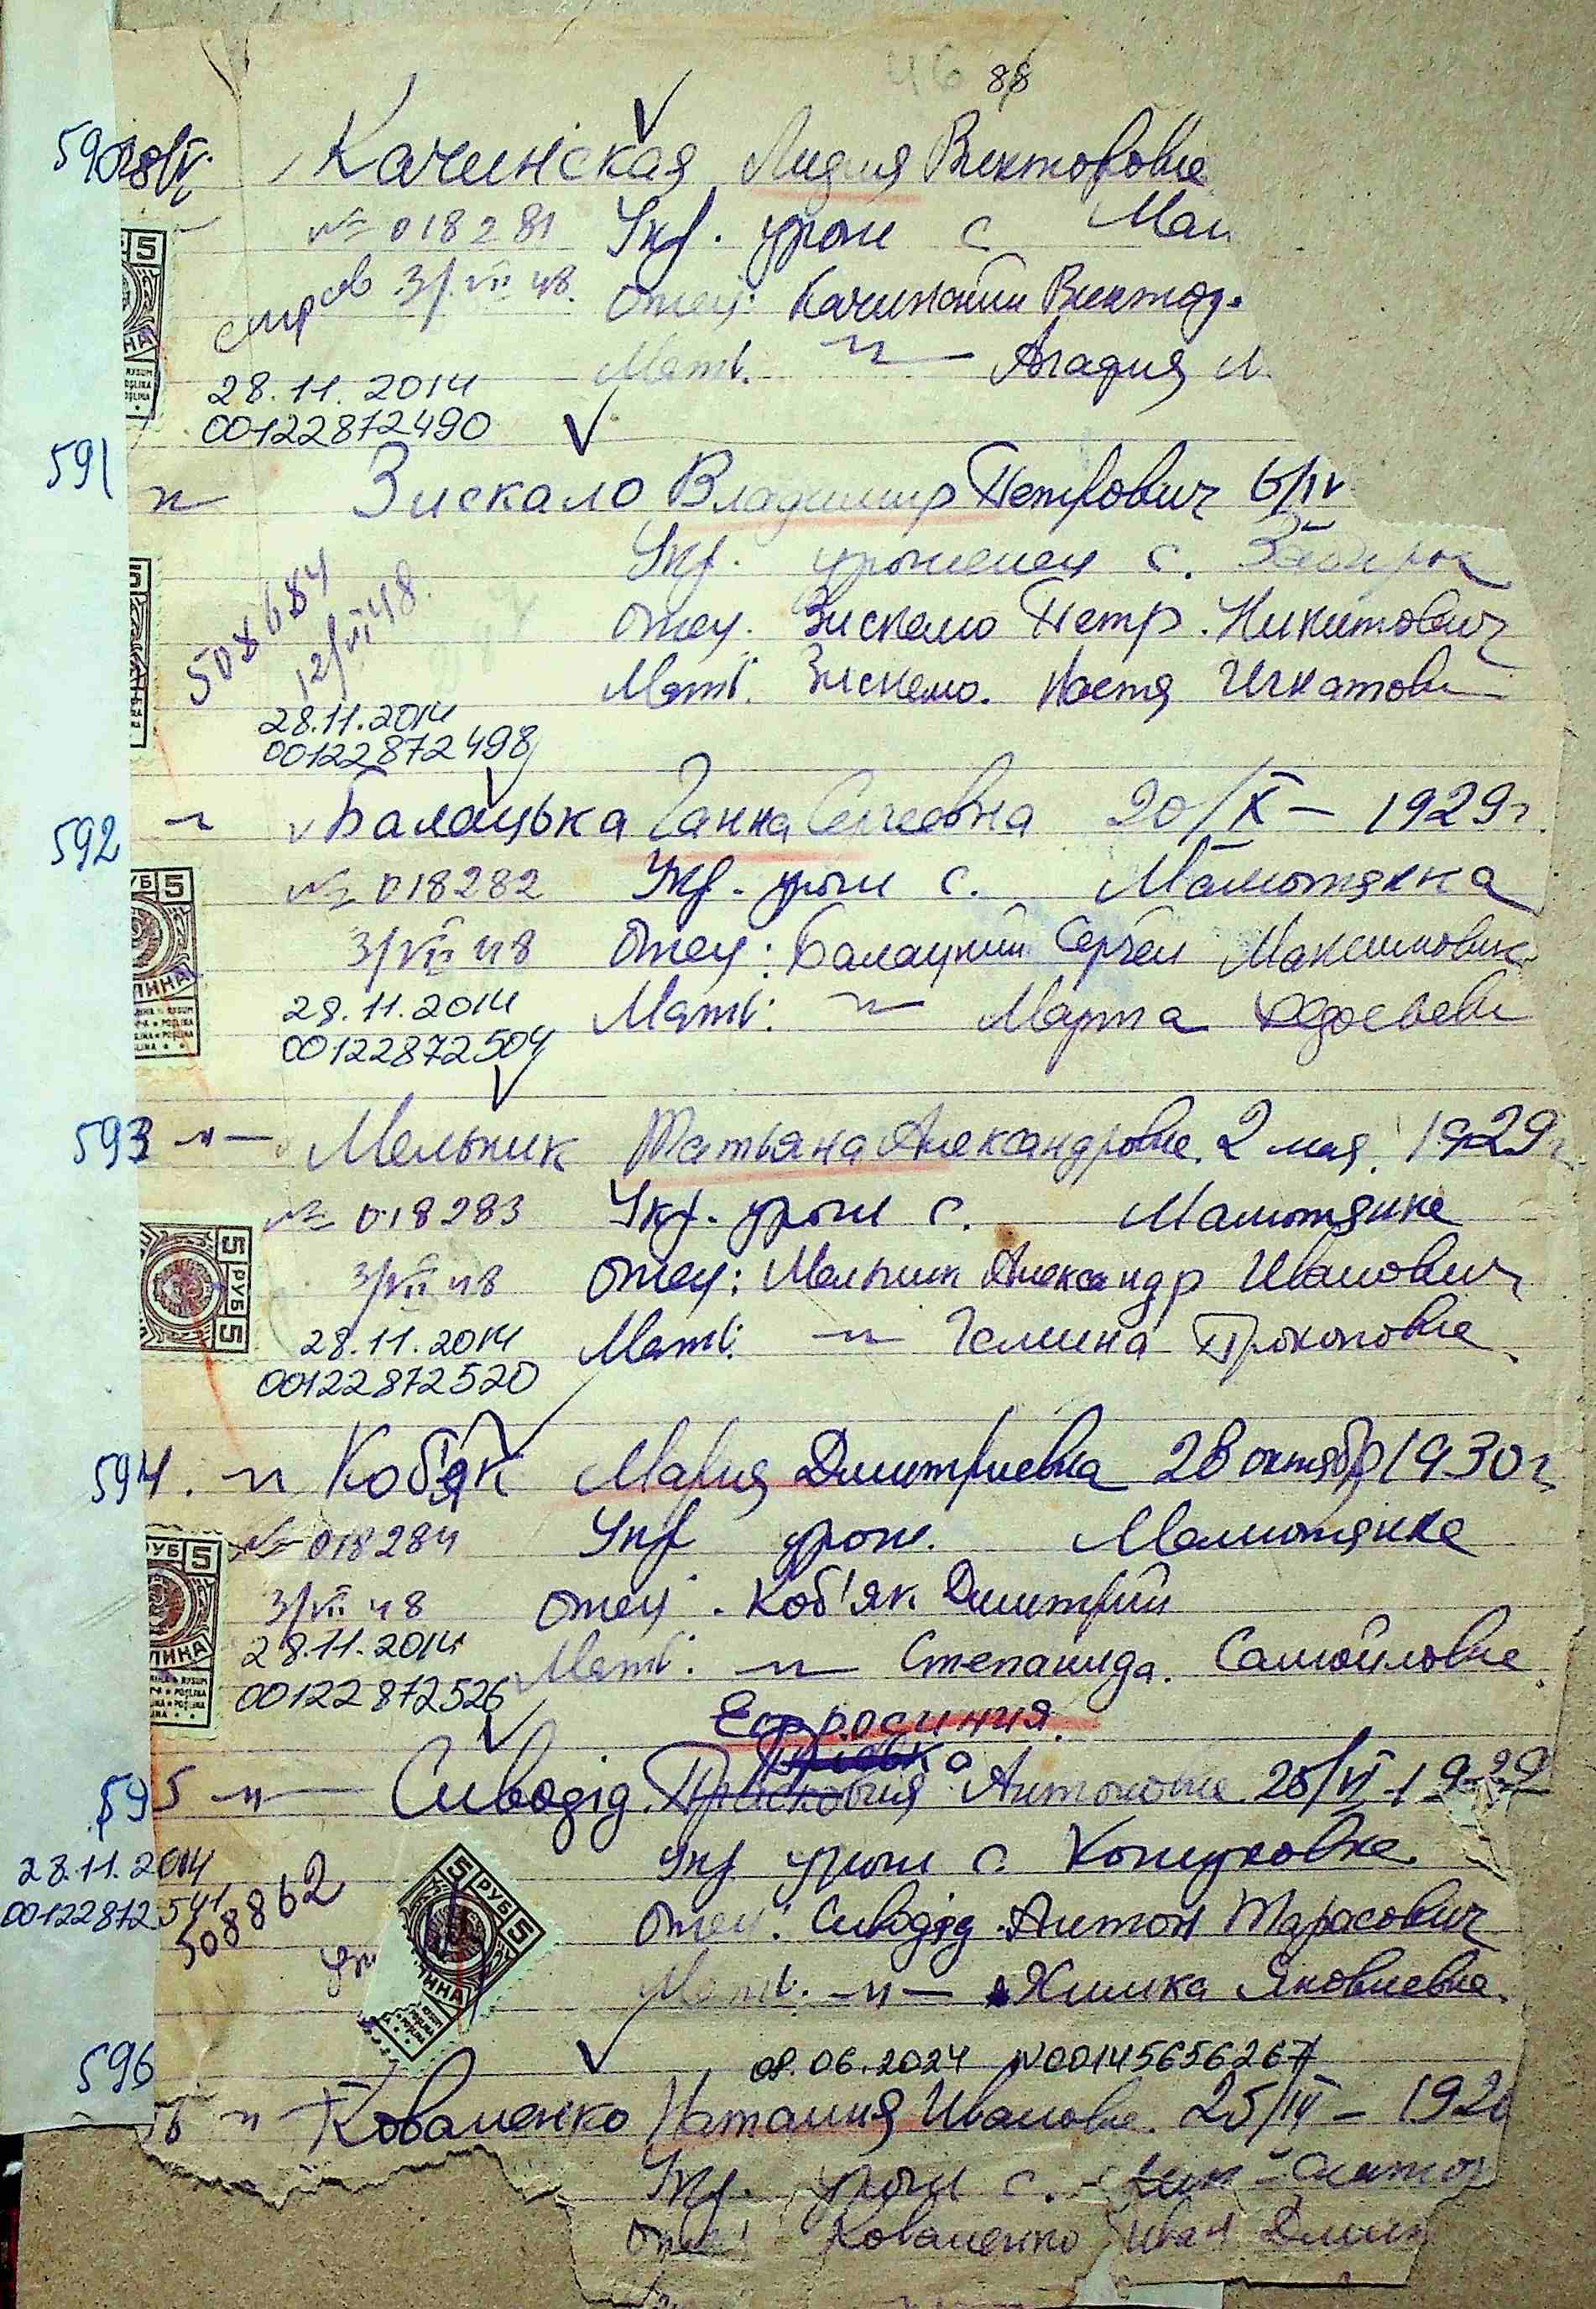 46 88
590 28/VI. Качинская Лидия Викторовна
№ 018281 Укр. урож с Мал
справ 3/VII 48. Отец: Качинский Виктор.
Мать. —"— Агафия
28.11.2014
00122872490
591 —"— Зискало Владимир Петрович 6/IV
Укр. уроженец с.
508684 Отец. Зискало Петр. Никитович
12/VI 48. Мать. Зискало. Настя Игнатовн
28.11.2014
00122872498
592 —"— Балацька Ганна Сергеевна 20/X – 1929г.
№ 018282 Укр. урож с. Малютянка
3/VII 48 Отец: Балацкий Сергей Максимович
28.11.2014 Мать: —"— Марта Федосьевн
00122872504
593 —"— Мельник Татьяна Александровна. 2 мая. 1929г
№ 018283 Укр. урож с. Малютянка
3/VII 48 Отец: Мельник Александр Иванович
28.11.2014 Мать: —"— Галина Прокоповна
00122872520
594. —"— Коб'як Мария Дмитриевна 28 октябр 1930г
№ 018284 Укр урож. Малютянка
3/VII 48 Отец. Коб'як Дмитрий
28.11.2014 Мать. —"— Степанида. Самойловна
00122872526
Ефросиния
595 —"— Сиводід Прасковия Антоновна 25/VI-1929
28.11.2014 Укр урож с. Кожуховка
00122872541 508862 Отец: Сиводід Антон Тарасович
Мать. —"— Химка Яковлевна
08.06.2024 N00145656267
596 —"— Коваленко Наталия Ивановна. 25/IV – 192
Укр. урож с.
Отец: Коваленко Иван Дмит
5 РУБ 5